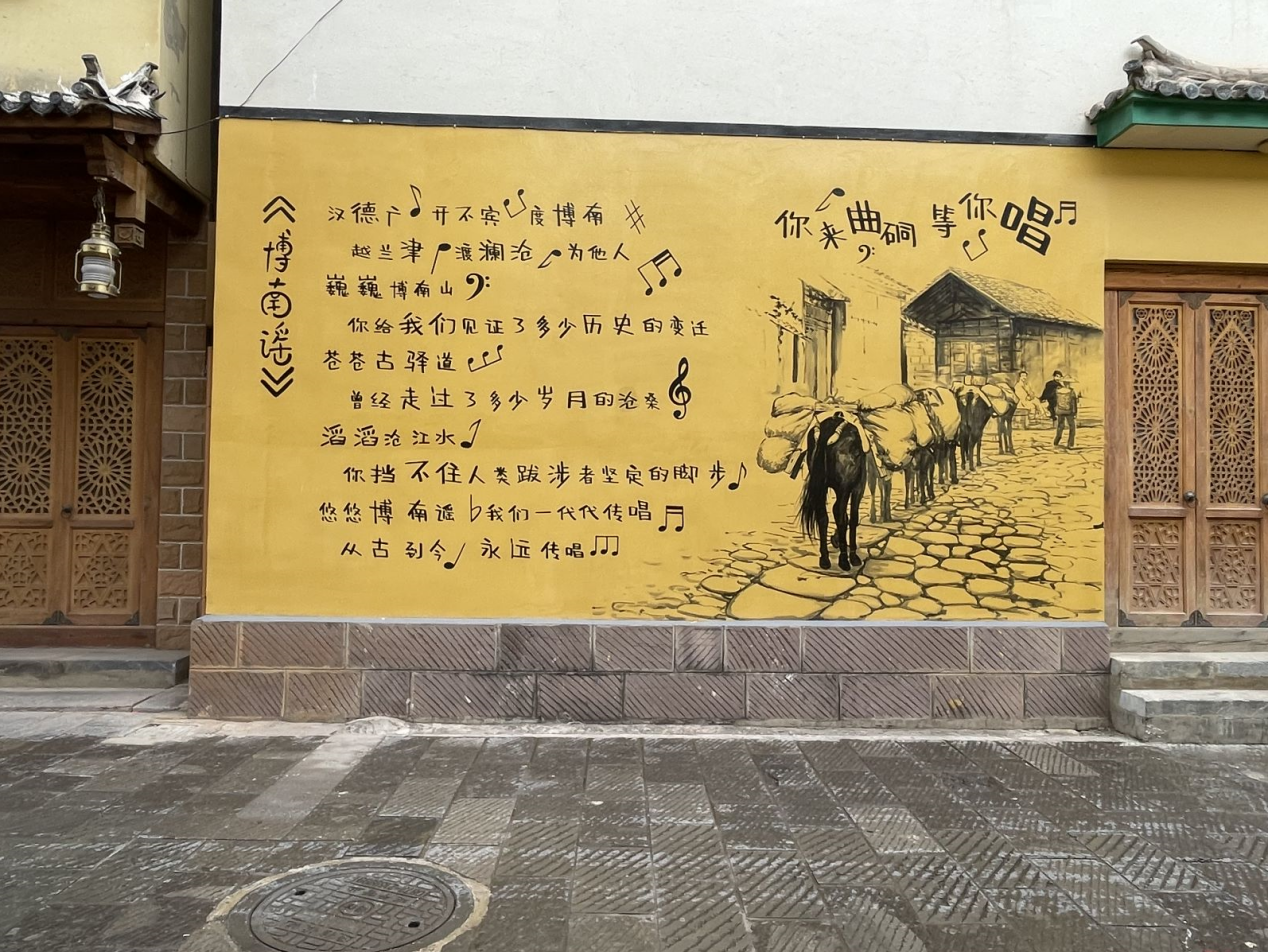 《博南谣》
汉德广 开不宾 度博南
越兰津 渡澜沧 为他人
巍巍博南山
你给我们见证了多少历史的变迁
苍苍古驿道
曾经走过了多少岁月的沧桑
滔滔沧江水
你挡不住人类跋涉者坚定的脚步
悠悠博南谣 我们一代代传唱
从古到今 永远传唱
你来曲硐 等你唱